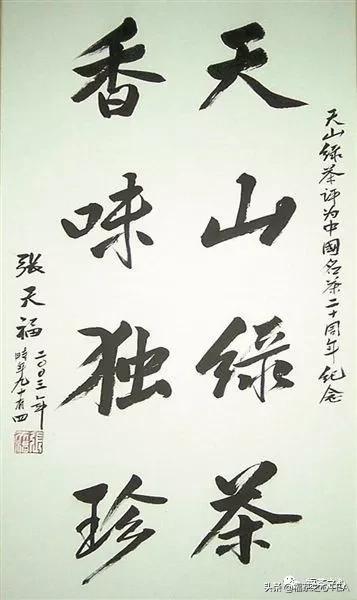 天山绿茶评为中國名茶二十周年纪念
天山绿茶
香味独珍
張天福
二〇〇三年
時年九十有四
头条